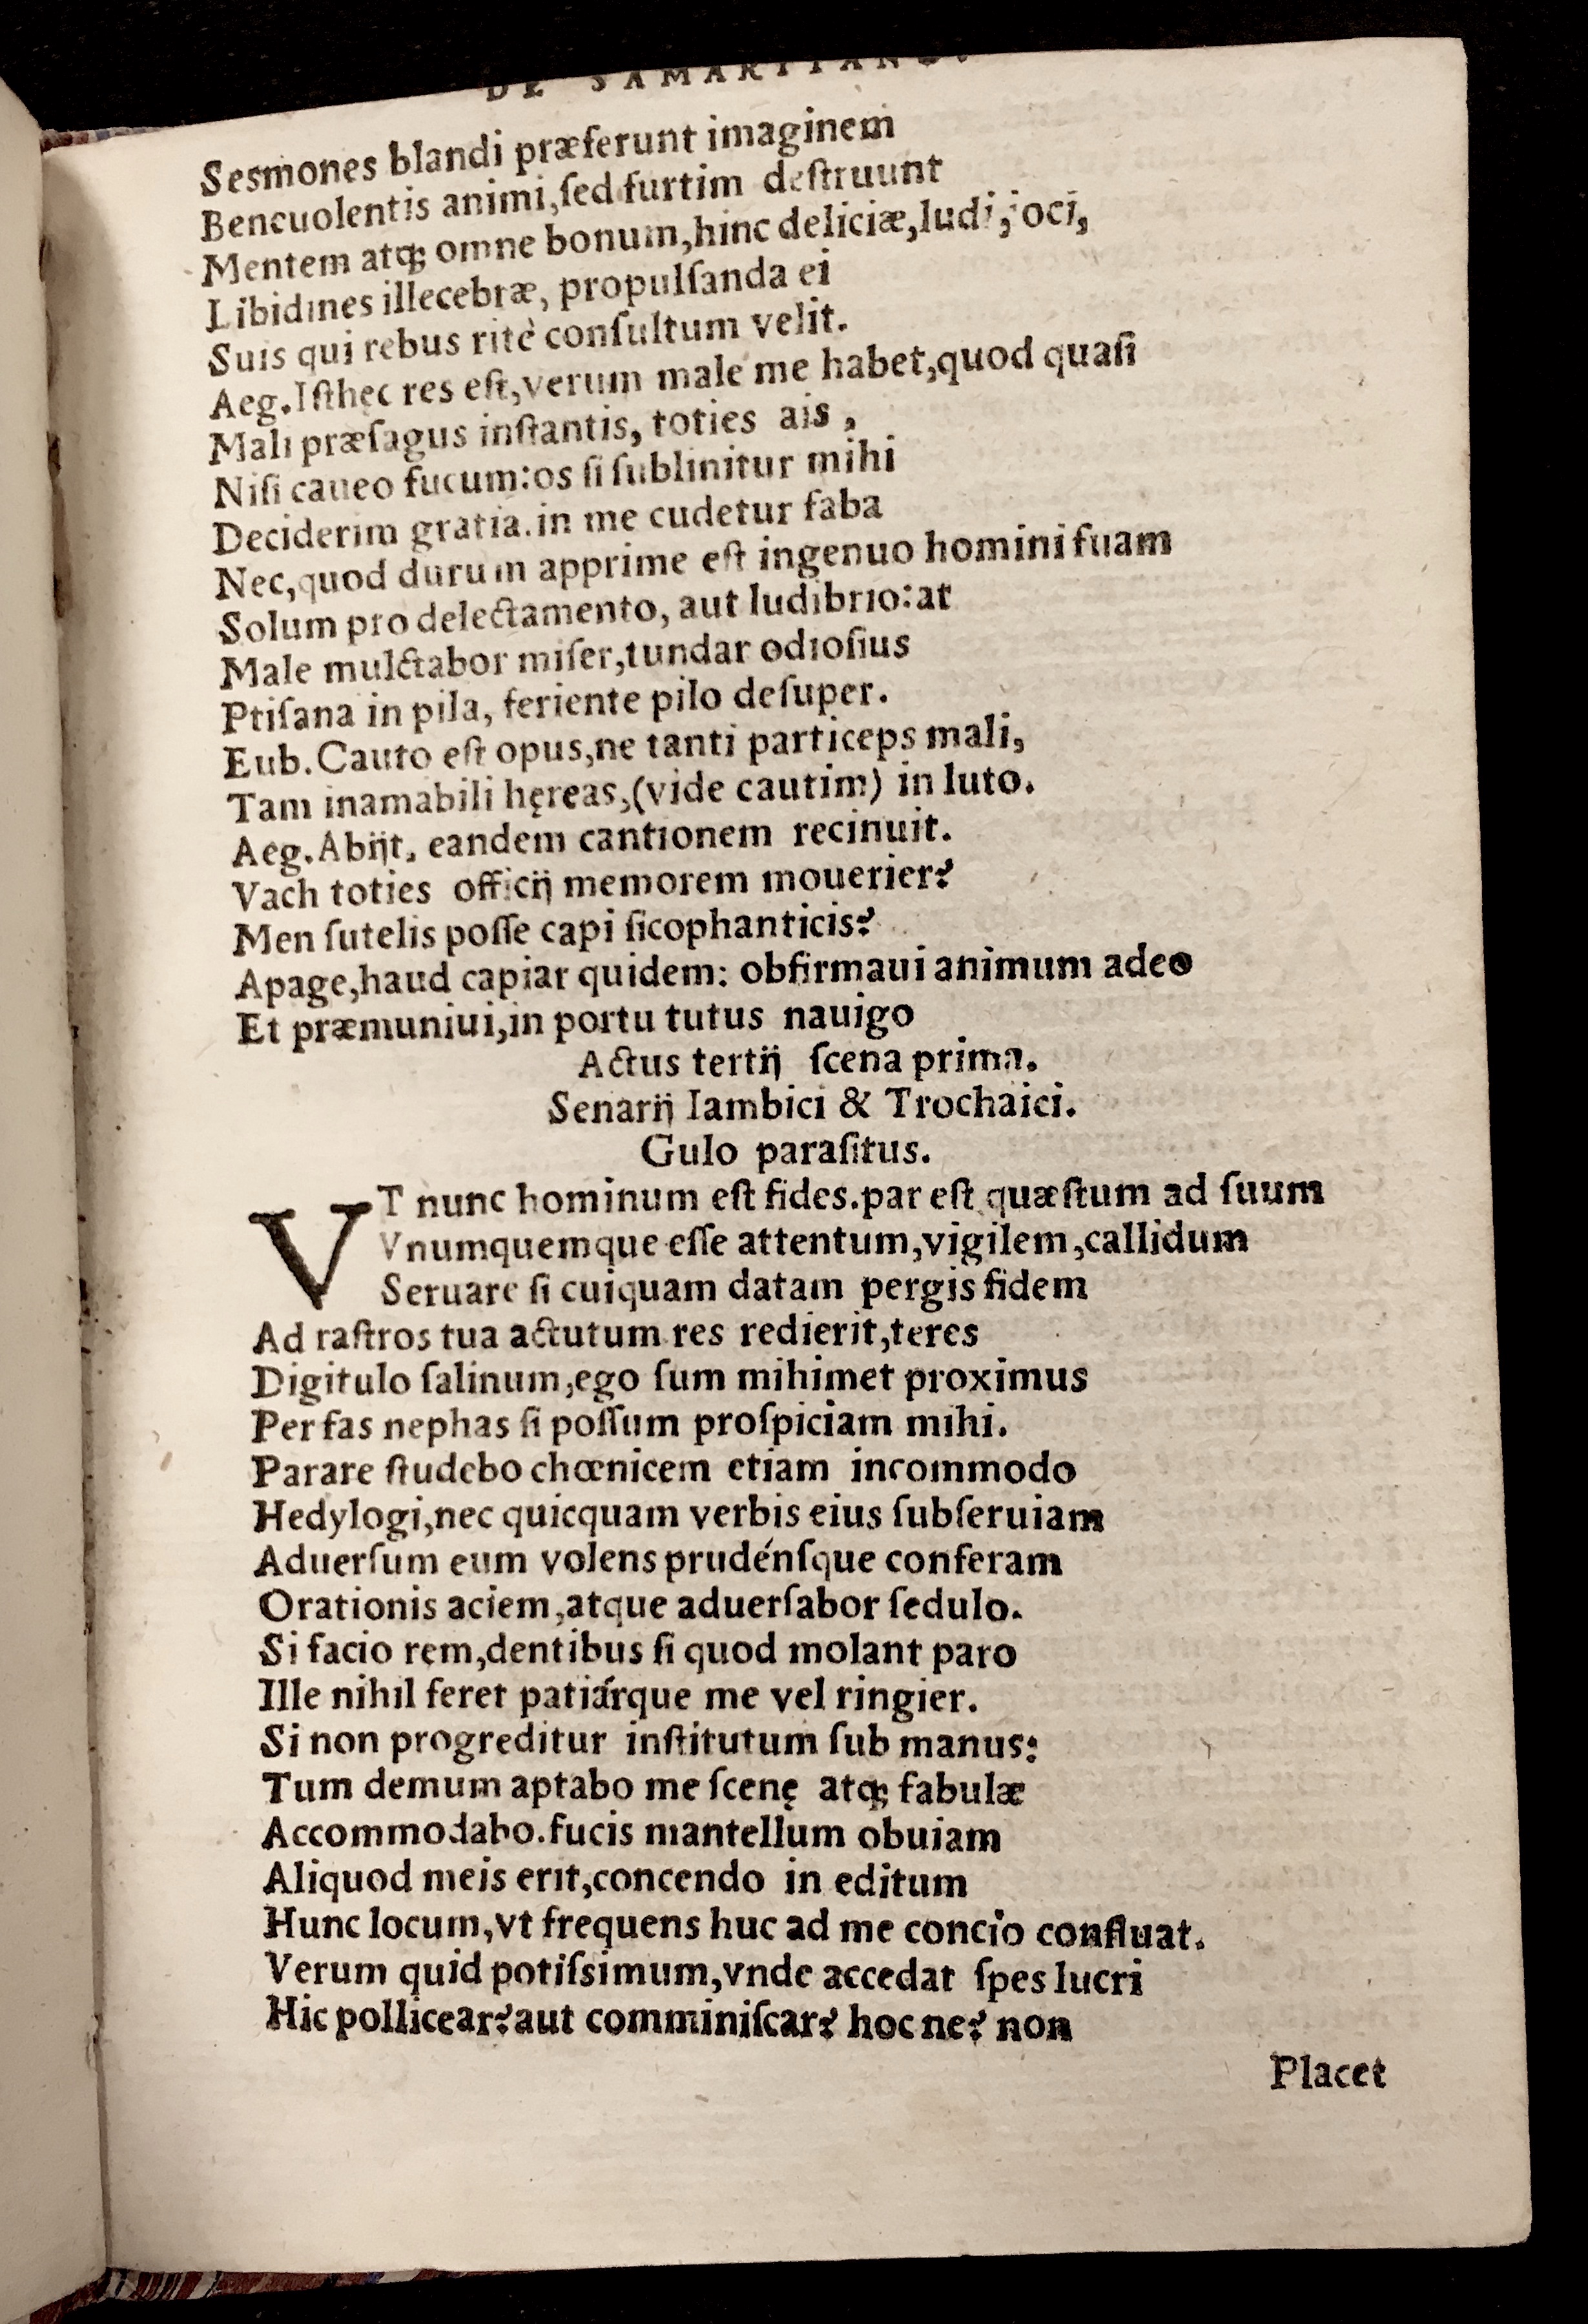 DE SAMARITANO.
Sesmones blandi præferunt imaginem
Beneuolentis animi,ſed furtim deſtruunt
Mentem atq; omne bonum,hinc deliciæ,ludi,ioci,
Libidines illecebræ, propulſanda ei
Suis qui rebus ritè conſultum velit.
Aeg.Iſthęc res eſt,verum male me habet,quod quaſi
Mali præſagus inſtantis, toties ais ,
Niſi caueo fucum:os ſi ſublinitur mihi
Deciderim gratia.in me cudetur faba
Nec,quod durum apprime eſt ingenuo homini fuam
Solum pro delectamento, aut ludibrio:at
Male mulctabor miſer,tundar odioſius
Ptiſana in pila, feriente pilo deſuper.
Eub.Cauto eſt opus,ne tanti particeps mali,
Tam inamabili hęreas,(vide cautim) in luto.
Aeg.Abijt, eandem cantionem recinuit.
Vach toties officij memorem mouerier?
Men ſutelis poſſe capi ſicophanticis?
Apage,haud capiar quidem: obfirmaui animum adeo
Et præmuniui,in portu tutus nauigo
Actus tertij ſcena prima.
Senarij Iambici & Trochaici.
Gulo paraſitus.
VT nunc hominum eſt fides.par eſt quæſtum ad ſuum
Vnumquemque eſſe attentum,vigilem,callidum
Seruare ſi cuiquam datam pergis fidem
Ad raſtros tua actutum res redierit,teres
Digitulo ſalinum,ego ſum mihimet proximus
Per fas nephas ſi poſſum proſpiciam mihi.
Parare ſtudebo chœnicem etiam incommodo
Hedylogi,nec quicquam verbis eius ſubſeruiam
Aduerſum eum volens prudénſque conferam
Orationis aciem,atque aduerſabor ſedulo.
Si facio rem,dentibus ſi quod molant paro
Ille nihil feret patiárque me vel ringier.
Si non progreditur inſtitutum ſub manus:
Tum demum aptabo me ſcenę atq; fabulæ
Accommodabo.fucis mantellum obuiam
Aliquod meis erit,concendo in editum
Hunc locum,vt frequens huc ad me concio confluat.
Verum quid potiſsimum,vnde accedat ſpes lucri
Hic pollicear?aut comminiſcar? hoc ne? non
Placet